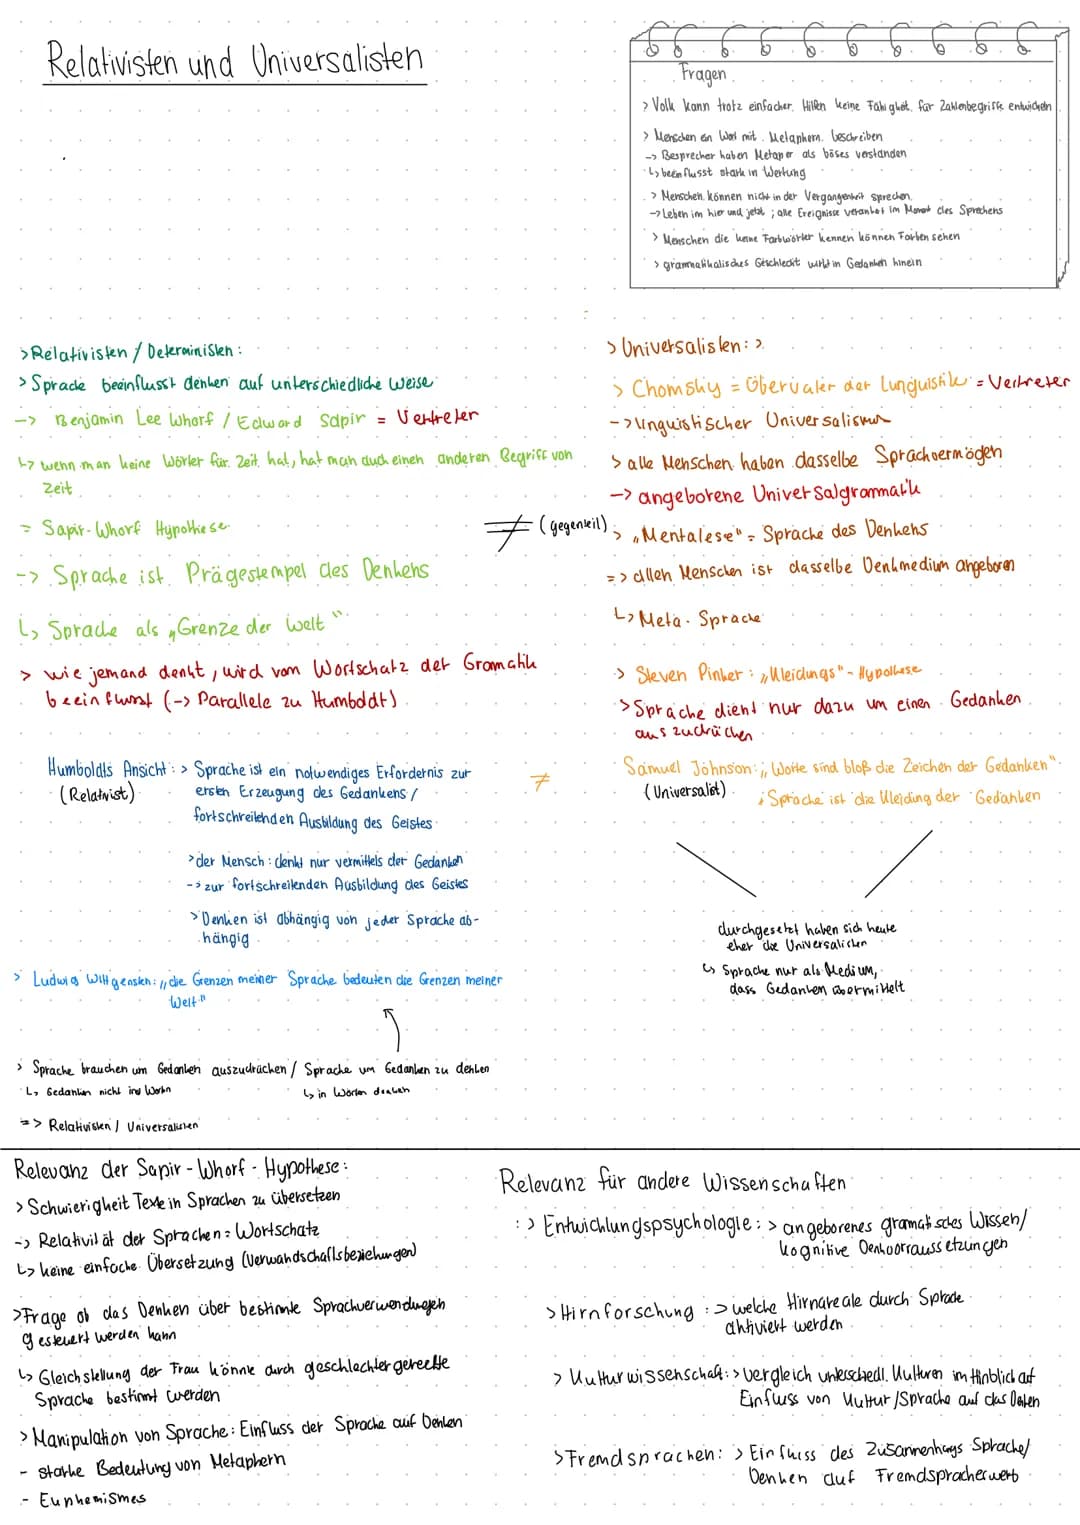 Relativisten und Universalisten
Fragen
> Volk kann trotz einfacher Hilfen keine Fähigkeit für Zahlenbegriffe entwickeln
> Menschen ein Wort mit Metaphern beschreiben
-> Besprecher haben Metaper als böses verstanden
↳ beeinflusst stark in Wertung
> Menschen können nicht in der Vergangenheit sprechen
-> Leben im hier und jetzt ; alle Ereignisse verankert im Moment des Sprechens
> Menschen die keine Farbwörter kennen können Farben sehen
> grammatikalisches Geschlecht wirkt in Gedanken hinein
> Relativisten / Deterministen :
> Sprache beeinflusst denken auf unterschiedliche Weise
-> Benjamin Lee Whorf / Edward Sapir = Vertreter
↳ wenn man keine Wörter für Zeit hat, hat man auch einen anderen Begriff von
Zeit
= Sapir-Whorf Hypothese
-> Sprache ist Prägestempel des Denkens
↳ Sprache als „Grenze der Welt"
> wie jemand denkt, wird vom Wortschatz der Gramatik
beeinflusst (-> Parallele zu Humboldt)
≠ (gegenteil)
> Universalisten: >
> Chomsky = Übervater der Linguistik = Vertreter
-> linguistischer Universalismus
> alle Menschen haben dasselbe Sprachvermögen
-> angeborene Universalgrammatik
> „Mentalese" = Sprache des Denkens
=> allen Menschen ist dasselbe Denkmedium angeboren
↳ Meta-Sprache
> Steven Pinker : „Kleidungs"-Hypothese
> Sprache dient nur dazu um einen Gedanken
auszudrücken
Humboldts Ansicht : > Sprache ist ein notwendiges Erfordernis zur
(Relativist) ersten Erzeugung des Gedankens /
fortschreitenden Ausbildung des Geistes
> der Mensch : denkt nur vermittels der Gedanken
-> zur fortschreitenden Ausbildung des Geistes
> Denken ist abhängig von jeder Sprache ab-
hängig
≠
Samuel Johnson: „Worte sind bloß die Zeichen der Gedanken"
(Universalist) ; Sprache ist die Kleidung der Gedanken
durchgesetzt haben sich heute
eher die Universalisten
↳ Sprache nur als Medium,
dass Gedanken übermittelt
> Ludwig Wittgenstein: „die Grenzen meiner Sprache bedeuten die Grenzen meiner
Welt"
> Sprache brauchen um Gedanken auszudrücken / Sprache um Gedanken zu denken
↳ Gedanken nicht in Worten
↳ in Worten denken
=> Relativisten / Universalisten
Relevanz der Sapir-Whorf-Hypothese :
> Schwierigkeit Texte in Sprachen zu übersetzen
-> Relativität der Sprachen = Wortschatz
↳ keine einfache Übersetzung (Verwandschaftsbeziehungen)
> Frage ob das Denken über bestimmte Sprachverwendungen
gesteuert werden kann
↳ Gleichstellung der Frau könnte durch geschlechtergerechte
Sprache bestimmt werden
> Manipulation von Sprache : Einfluss der Sprache auf Denken
- starke Bedeutung von Metaphern
- Euphemismes
Relevanz für andere Wissenschaften
:> Entwicklungspsychologie : > angeborenes gramatisches Wissen /
kognitive Denkvoraussetzungen
> Hirnforschung : > welche Hirnareale durch Sprache
aktiviert werden
> Kulturwissenschaft : > Vergleich unterschiedl. Kulturen im Hinblick auf
Einfluss von Kultur / Sprache auf das Denken
> Fremdsprachen : > Einfluss des Zusammenhangs Sprache/
Denken auf Fremdspracherwerb